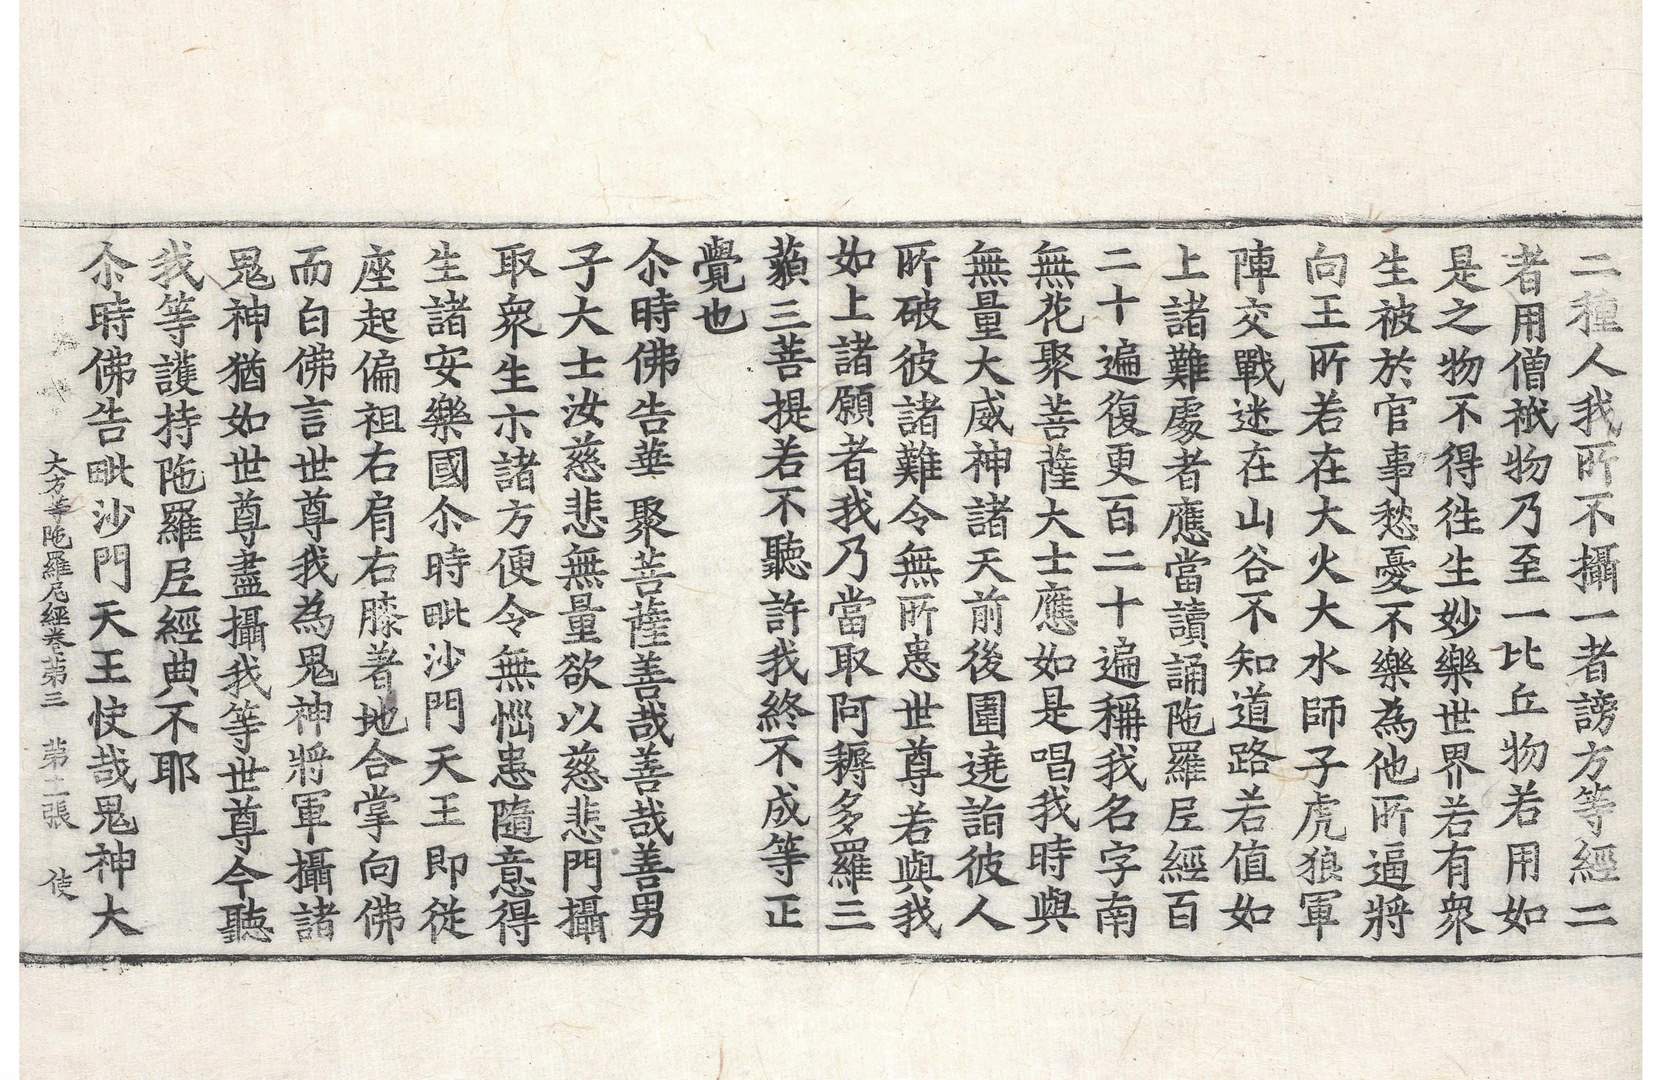 二種人我所不攝一者謗方等經二
者用僧祇物乃至一比丘物若用如
是之物不得徃生妙樂世界若有衆
生被於官事愁憂不樂為他所逼將
向王所若在大火大水師子虎狼軍
陣交戰迷在山谷不知道路若值如
上諸難處者應當讀誦陁羅𡰱經百
二十遍復更百二十遍稱我名字南
無花聚菩薩大士應如是唱我時與
無量大威神諸天前後圍遶詣彼人
所破彼諸難令無所患世尊若與我
如上諸願者我乃當取阿耨多羅三
藐三菩提若不聽許我終不成等正
覺也
尒時佛告華聚菩薩善哉善哉善男
子大士汝慈悲無量欲以慈悲門攝
取衆生示諸方便令無惱患隨意得
生諸安樂國尒時毗沙門天王即從
座起偏袒右肩右膝著地合掌向佛
而白佛言世尊我為鬼神將軍攝諸
鬼神猶如世尊盡攝我等世尊今聽
我等護持陁羅𡰱經典不耶
尒時佛告毗沙門天王快哉鬼神大
大方等陁羅尼經卷第三 第二張 使